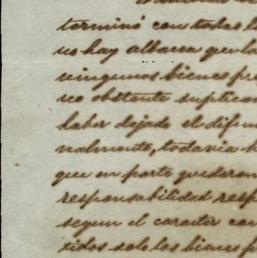 terminó con todas l
no hay albacea que la
ningunos bienes pro
no obstante suplican
haber dejado el difun
nalmente, todavia h
que en parte quedaron
responsabilidad resp
segun el caracter con
tidos solo los bienes p